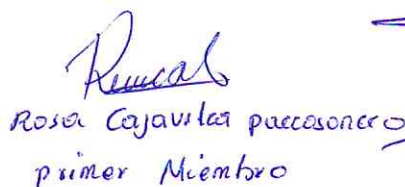 Rosa Cajavilca paccosoncco
primer Miembro